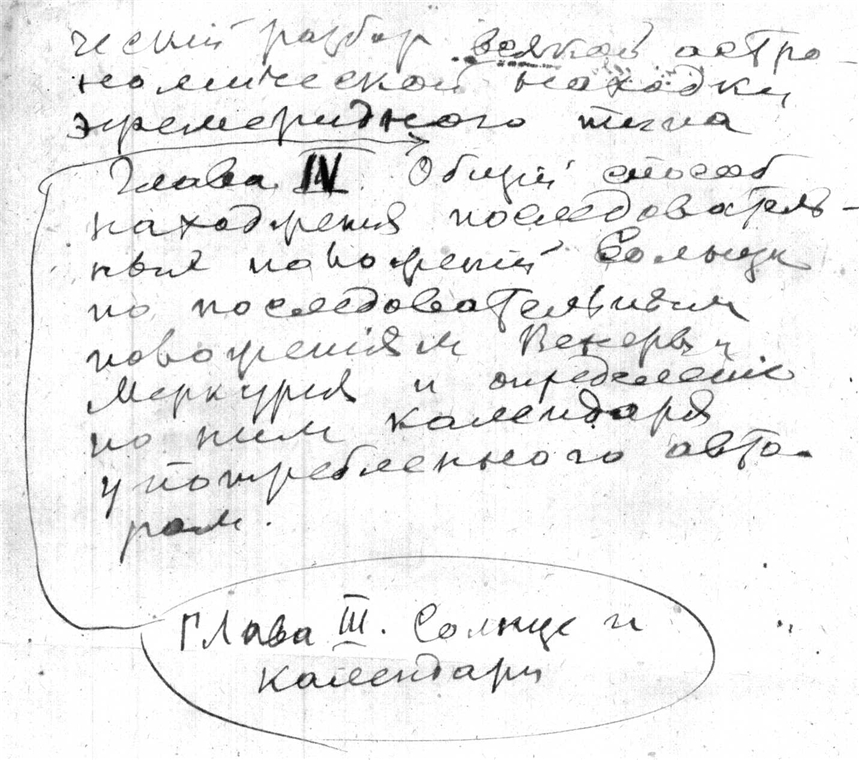 ческий разбор всякой астро-
номической находки
эфемеридного типа
Глава IV. Общий способ
нахождения последователь-
ных положений Солнца
по последовательным
положениям Венеры и
Меркурия и определение
по ним календаря
употребленного авто-
ром.
Глава III. Солнце и
календари